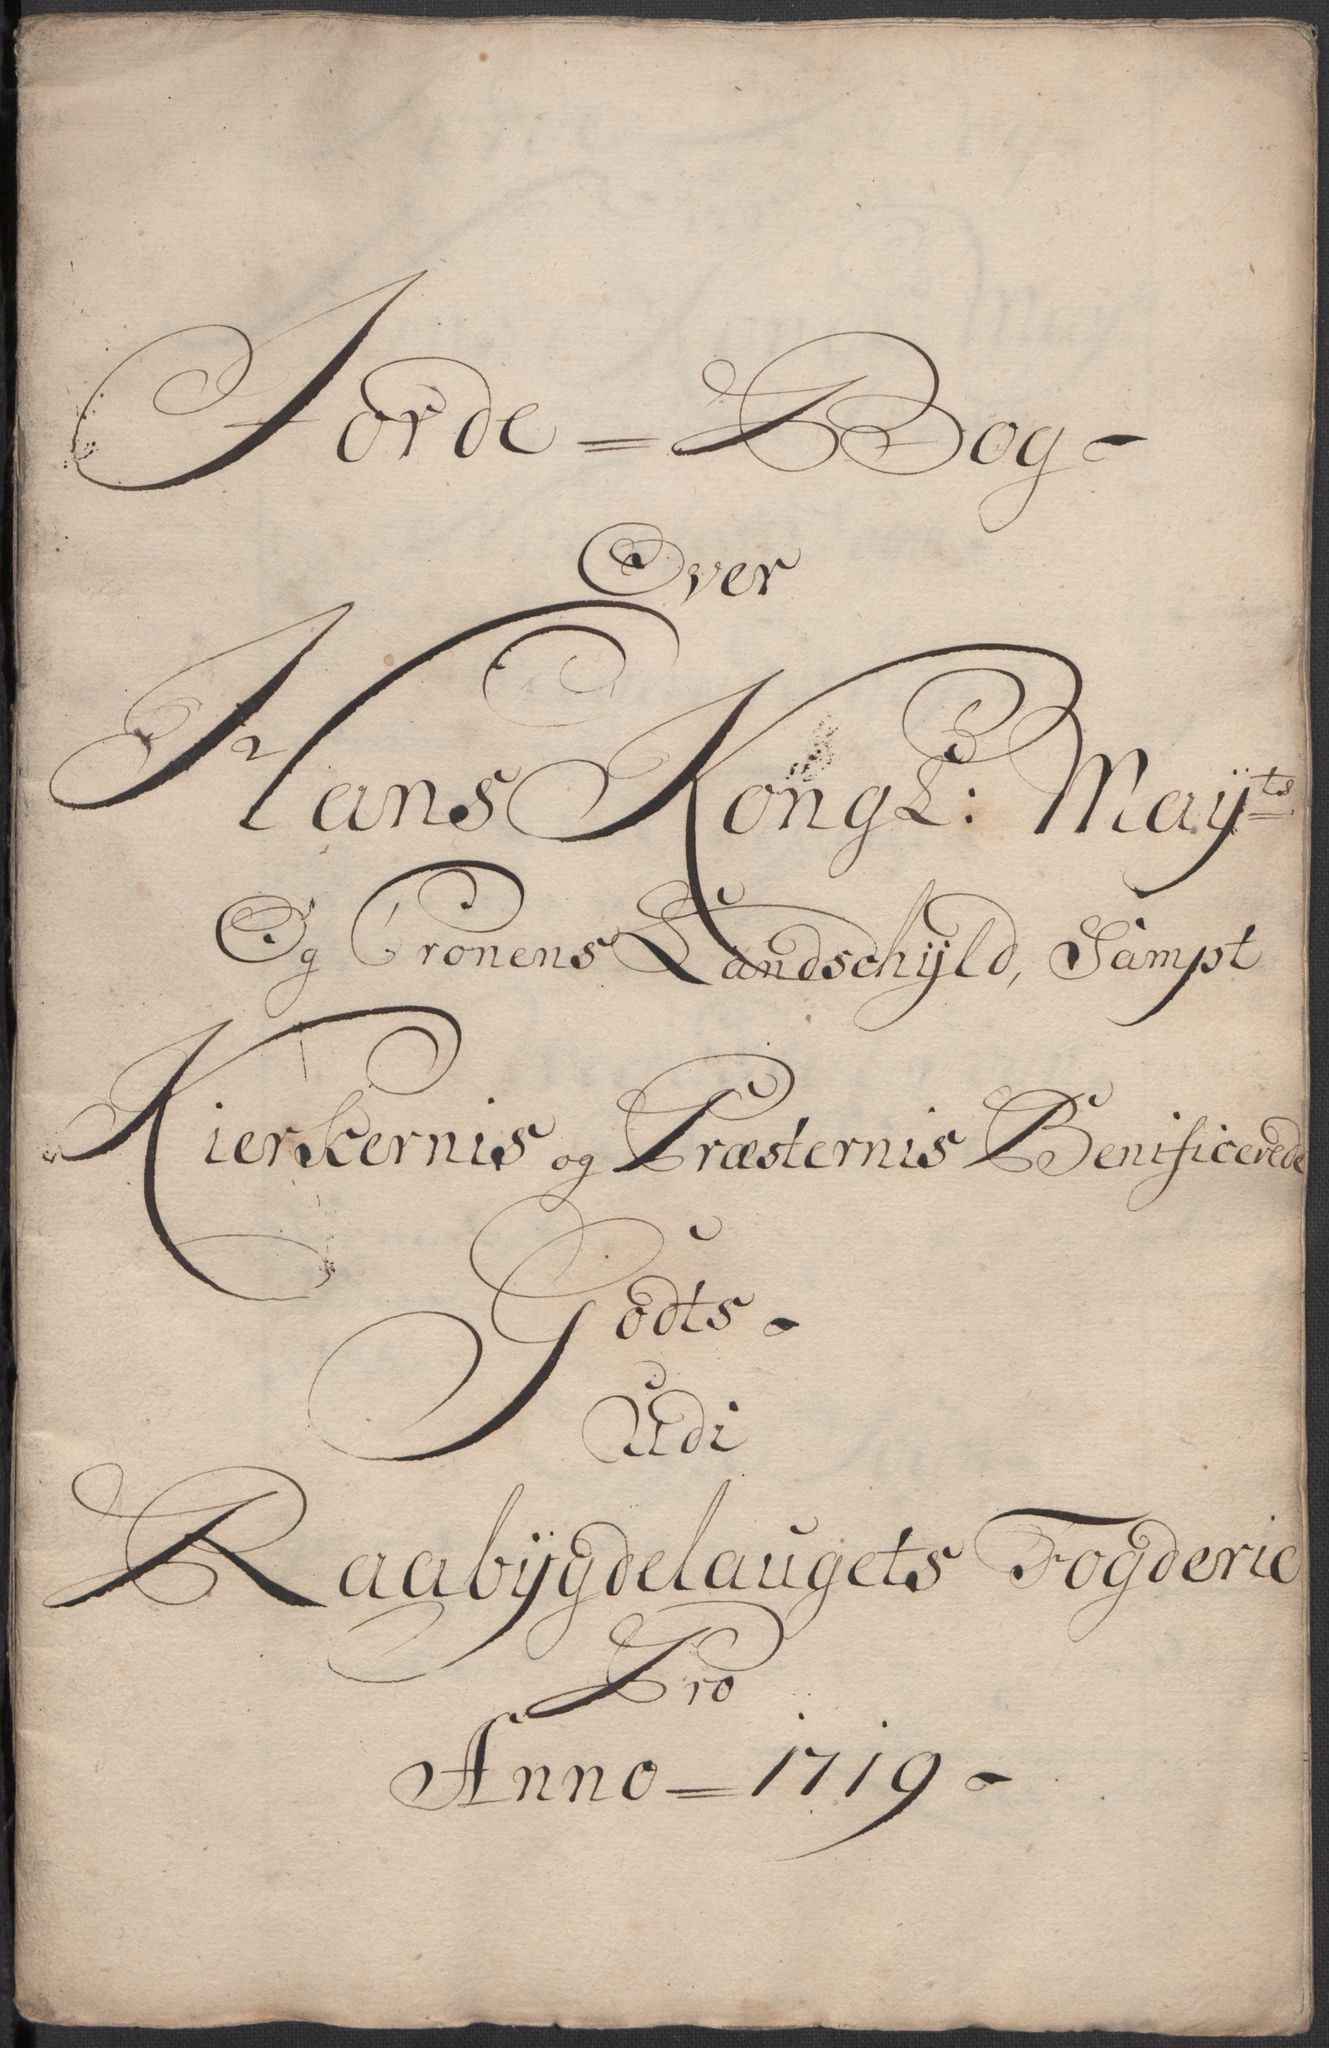 Jorde = Bog -
Over
Hans Kongl: Maÿts
Og Cronens Landschÿld, Sampt
Kierkernis og Præsternis Benificerede
Godts -
Udi
Raabÿgdelaugets Fogderie
Pro
Anno = 1719 -